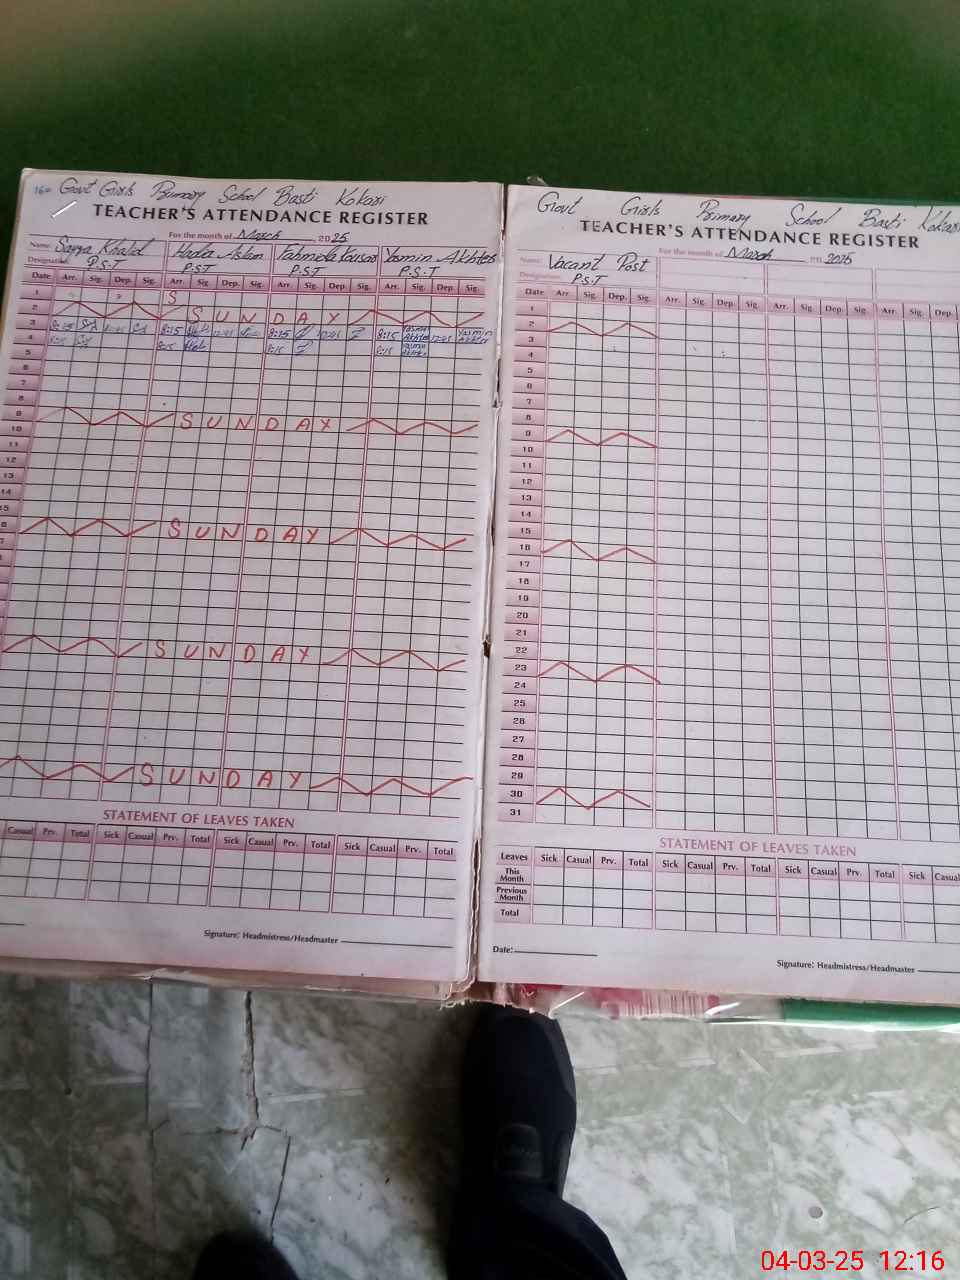 Govt Girls Primary School Basti Kokari
TEACHER'S ATTENDANCE REGISTER
For the month of March 2025
Name: Sayra Khalid Hada Aslam Fahmida Kausar Yasmin Akhtar
Designation P.S.T P.S.T P.S.T P.S.T
Date Arr. Sig. Dep. Sig. Arr. Sig. Dep. Sig. Arr. Sig. Dep. Sig. Arr. Sig. Dep. Sig.
1 S
2 SUNDAY
3 8:15 12:45 8:15 12:45 8:15 12:45 8:15 Yasmin Akhtar 12:45 Yasmin Akhtar
4 8:15 8:15 8:15 8:15 Yasmin Akhtar
5
6
7
8
9 SUNDAY
10
11
12
13
14
15
16 SUNDAY
SUNDAY
SUNDAY
STATEMENT OF LEAVES TAKEN
Casual Prv. Total Sick Casual Prv. Total Sick Casual Prv. Total Sick Casual Prv. Total
Signature: Headmistress/Headmaster
Govt Girls Primary School Basti Kokari
TEACHER'S ATTENDANCE REGISTER
For the month of March 2025
Name: Vacant Post
Designation P.S.T
Date Arr. Sig. Dep. Sig. Arr. Sig. Dep. Sig. Arr. Sig. Dep. Sig. Arr. Sig. Dep.
1
2
3
4
5
6
7
8
9
10
11
12
13
14
15
16
17
18
19
20
21
22
23
24
25
26
27
28
29
30
31
STATEMENT OF LEAVES TAKEN
Leaves Sick Casual Prv. Total Sick Casual Prv. Total Sick Casual Prv. Total Sick Casual
This Month
Previous Month
Total
Date:
Signature: Headmistress/Headmaster
04-03-25 12:16